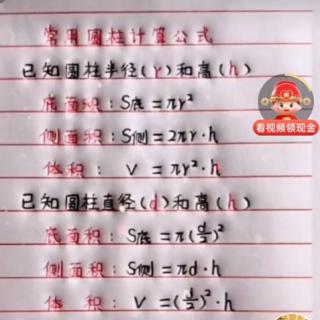 常用圆柱计算公式
已知圆柱半径(r)和高(h)
底面积:S底=πr²
侧面积:S侧=2πr·h
体积:V=πr²·h
看视频领现金
已知圆柱直径(d)和高(h)
底面积:S底=π(d/2)²
侧面积:S侧=πd·h
体积:V=(d/2)²·h